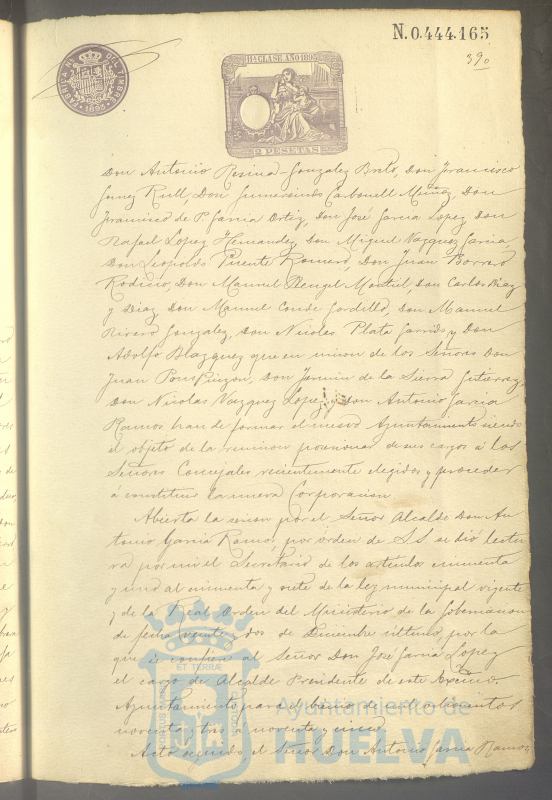 N.0.444.165
39
FABRICA NL DEL TIMBRE
1895
11ª CLASE AÑO 1895
2 PESETAS
Don Antonio Rosina Gonzalez Brito, Don Francisco
Rull, Don Gumersindo Carbonell Muñoz, Don
Francisco de P. Garcia Ortiz, Don José Garcia Lopez, Don
Rafael Lopez Hernandez, Don Miguel Vazquez Garcia,
Don Leopoldo Puente Romero, Don Juan Borrero
Rodicio, Don Manuel Rengel Montiel, Don Carlos Diaz
y Diaz, Don Manuel Conde Gordillo, Don Manuel
Rivero Gonzalez, Don Nicolas Plata Garrido y Don
Adolfo Blazquez que en union de los Señores Don
Juan Pons Pinzon, Don Fermin de la Sierra Gutierrez,
Don Nicolas Vazquez Lopez y Don Antonio Garcia
Ramos han de formar el nuevo Ayuntamiento siendo
el objeto de la reunion posesionar de sus cargos á los
Señores Concejales recientemente elegidos y proceder
á constituir la nueva Corporacion.
Abierta la sesion por el Señor Alcalde Don An-
tonio Garcia Ramos, por orden de S.S. se dió lectu-
ra por mi el Secretario de los articulos cincuenta
y uno al cincuenta y siete de la ley municipal vigente
y de la Real Orden del Ministerio de la Gobernacion
de fecha veinte y dos de Diciembre último, por la
que se confiere al Señor Don José Garcia Lopez
el cargo de Alcalde Presidente de este Excmo.
Ayuntamiento para el bienio de mil ochocientos
noventa y tres á noventa y cinco.
Acto seguido el Señor Don Antonio Garcia Ramos
ET TERRAE
Ayuntamiento de
HUELVA